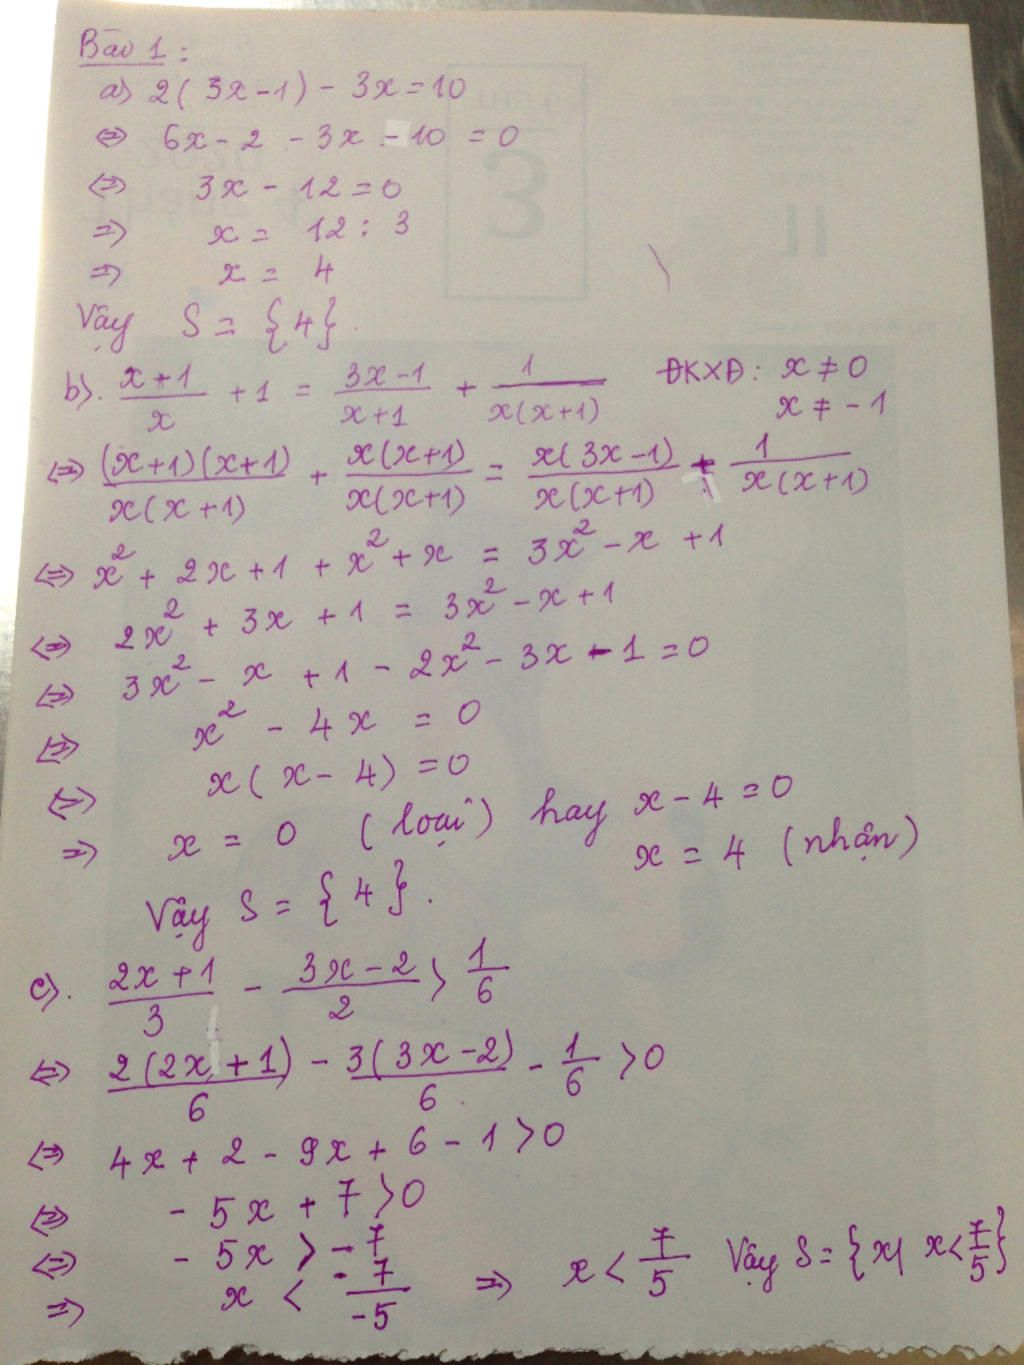 Bài 1:
a) 2(3x-1) - 3x = 10
⇔ 6x - 2 - 3x - 10 = 0
⇔ 3x - 12 = 0
⇒ x = 12 : 3
⇒ x = 4
Vậy S = {4}.
b). (x+1)/x + 1 = (3x-1)/(x+1) + 1/(x(x+1)) ĐKXĐ: x ≠ 0
x ≠ -1
⇔ (x+1)(x+1)/(x(x+1)) + x(x+1)/(x(x+1)) = x(3x-1)/(x(x+1)) + 1/(x(x+1))
⇔ x² + 2x + 1 + x² + x = 3x² - x + 1
⇔ 2x² + 3x + 1 = 3x² - x + 1
⇔ 3x² - x + 1 - 2x² - 3x - 1 = 0
⇔ x² - 4x = 0
⇔ x(x - 4) = 0
⇒ x = 0 (loại) hay x - 4 = 0
x = 4 (nhận)
Vậy S = {4}.
c). (2x+1)/3 - (3x-2)/2 > 1/6
⇔ 2(2x+1)/6 - 3(3x-2)/6 - 1/6 > 0
⇔ 4x + 2 - 9x + 6 - 1 > 0
⇔ - 5x + 7 > 0
⇔ - 5x > -7
⇒ x < -7/-5 ⇒ x < 7/5 Vậy S = {x| x < 7/5}